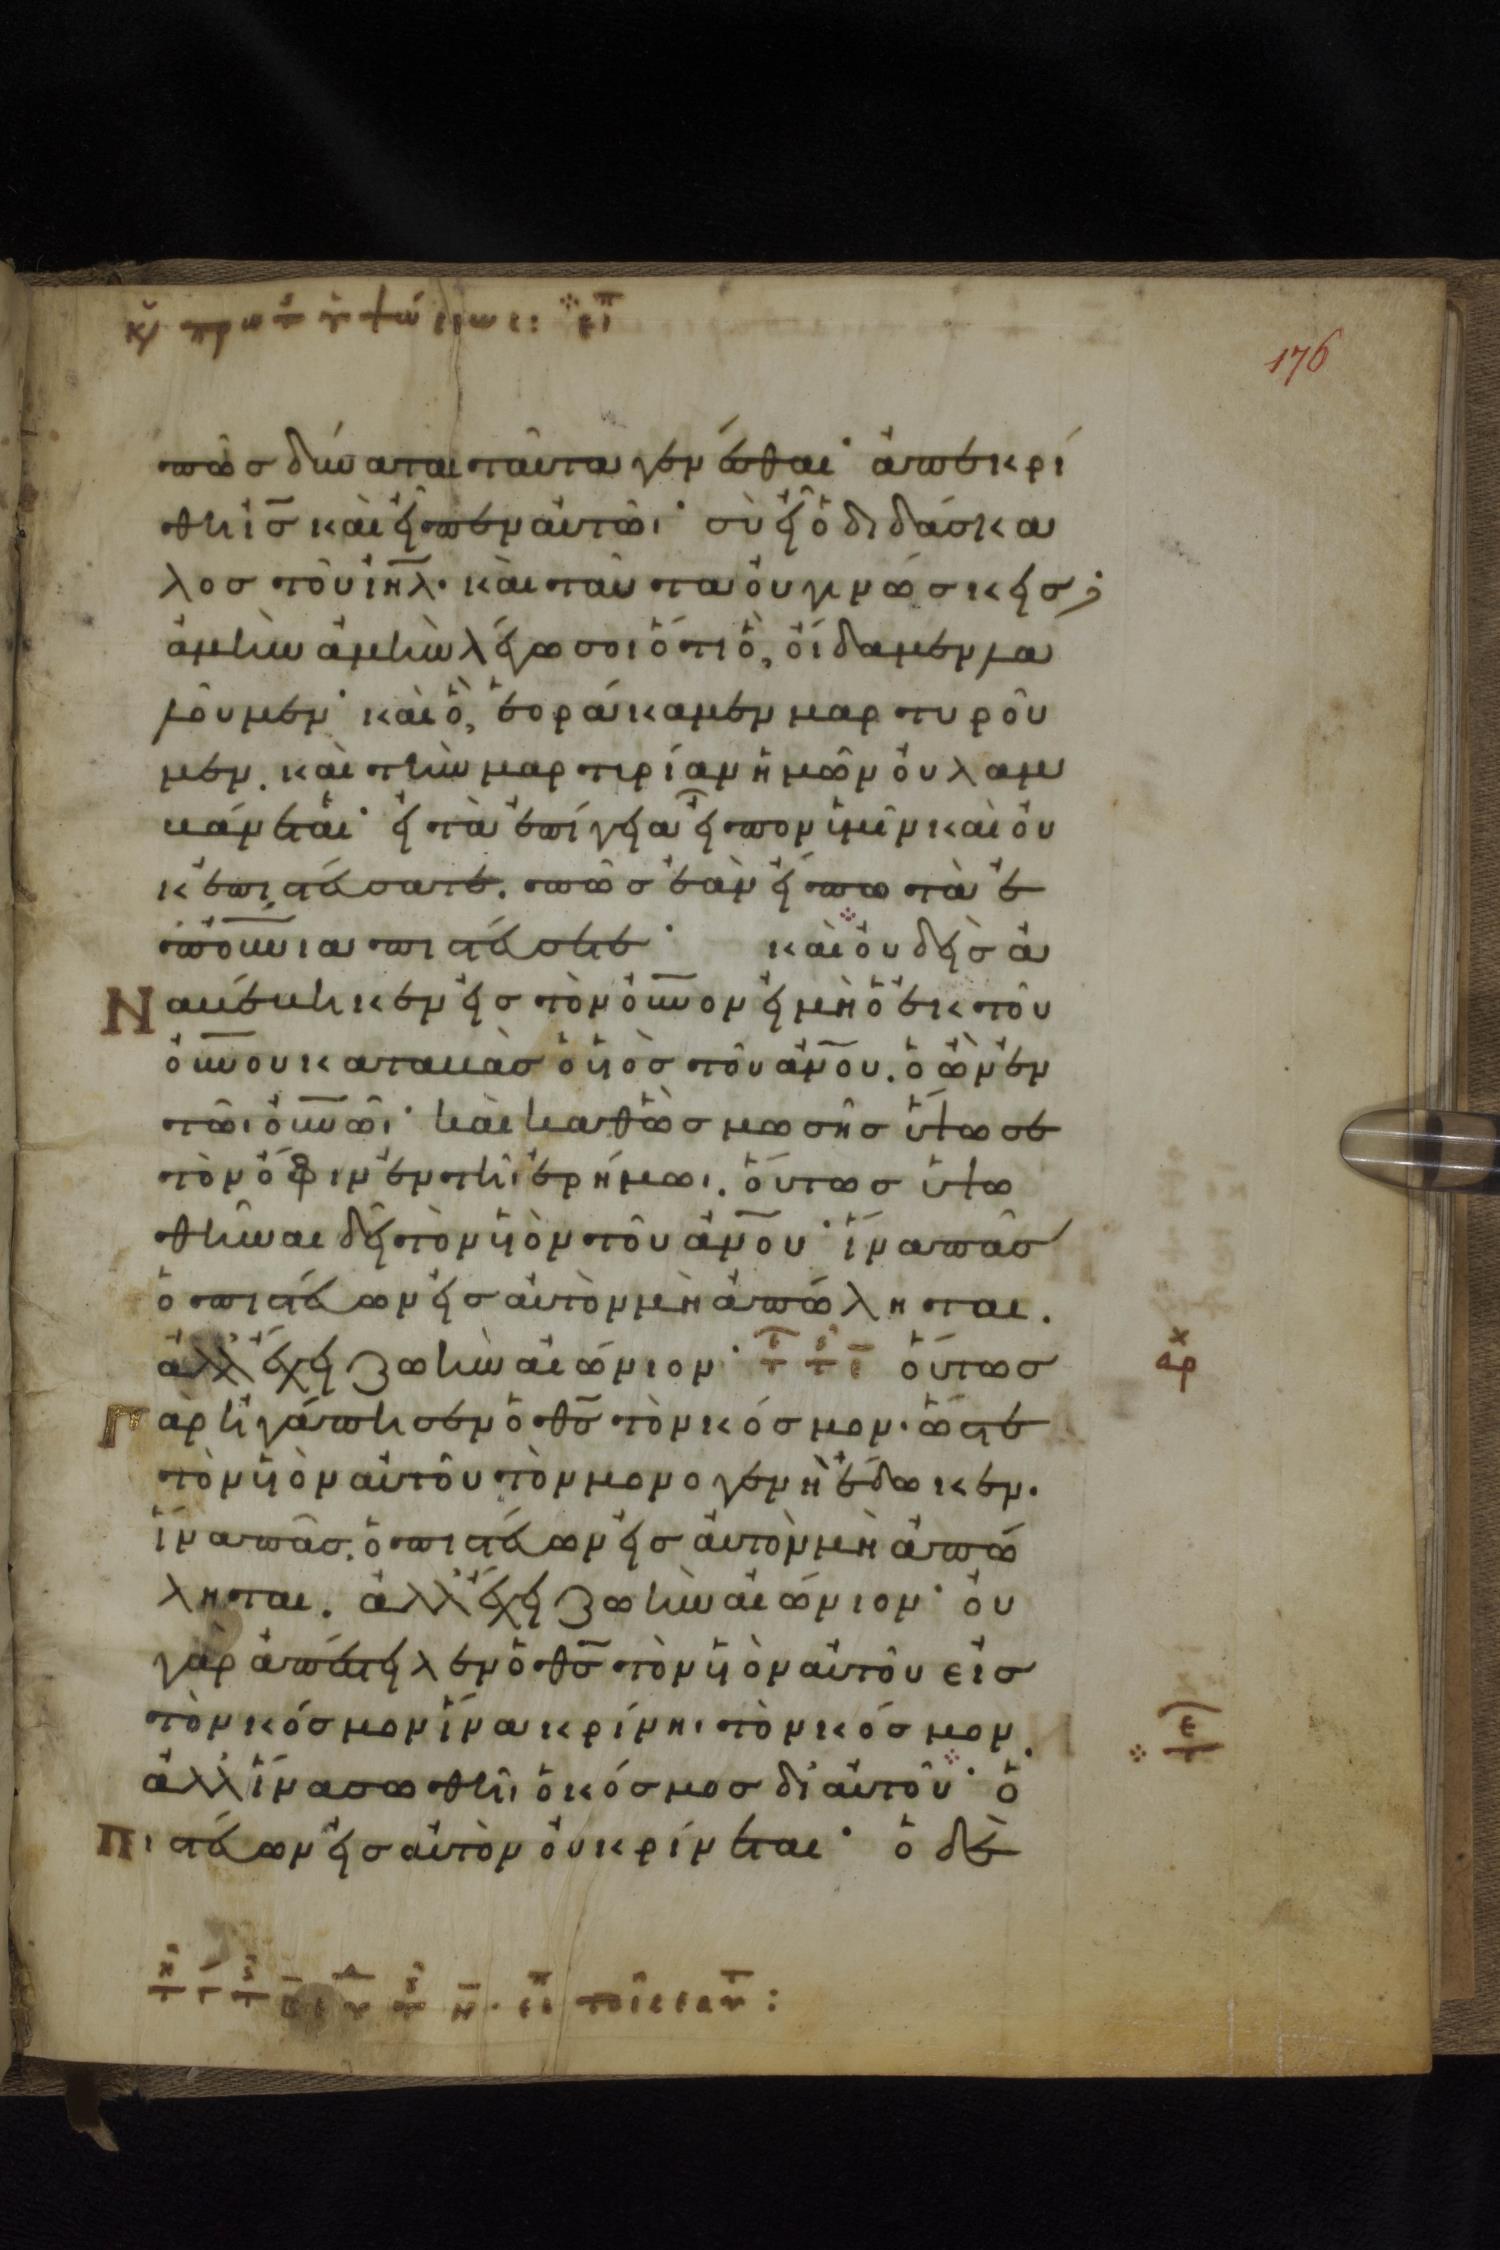 176
πῶσ δύναται ταῦτα γενέσθαι· ἀπεκρί
θη ἰ̅σ̅ καὶ εἶπεν αὐτῶι· σὺ εἶ ὁ διδάσκα
λοσ τοῦ ἰη̅λ̅. καὶ ταῦτα οὐ γινώσκεισ;
ἀμὴν ἀμὴν λέγω σοι ὅτι ὃ, οἴδαμεν λα
λοῦμεν· καὶ ὃ, ἑοράκαμεν μαρτυροῦ
μεν. καὶ τὴν μαρτυρίαν ἡμῶν οὐ λαμ
βάνεται· εἰ τὰ ἐπίγεια εἶπον ὑμῖν καὶ οὐ
κ ἐπιστεύσατε. πῶσ ἐὰν εἴπω τὰ ἐ
πο̅υ̅νια πιστεύσετε· καὶ οὐδεὶσ ἀ
Ναβέβηκεν εἰσ τὸν ο̅υ̅νον εἰ μὴ ὁ ἐκ τοῦ
ο̅υ̅νου καταβὰσ ὁ υἱὸσ τοῦ ἀν̅ο̅υ. ὁ ὢν ἐν
τῶι ο̅υ̅νῶι· καὶ καθὼσ μωσῆσ ὕψωσε
τὸν ὄφιν ἐν τῆι ἐρήμωι. οὕτωσ ὑψω
θῆναι δεῖ τὸν υἱὸν τοῦ ἀν̅ο̅υ· ἵνα πᾶσ
ὁ πιστεύων εἰσ αὐτὸν μὴ ἀπώληται.
ἀλλ' ἔχει ζωὴν αἰώνιον· οὕτωσ
Γὰρ ἠγάπησεν ὁ θ̅σ̅ τὸν κόσμον. ὥστε
τὸν υἱὸν αὐτοῦ τὸν μονογενῆ ἔδωκεν.
ἵνα πᾶσ. ὁ πιστεύων εἰσ αὐτὸν μὴ ἀπώ
ληται. ἀλλ' ἔχει ζωὴν αἰώνιον· οὐ
γὰρ ἀπέστειλεν ὁ θ̅σ̅ τὸν υἱὸν αὐτοῦ εἰσ
τὸν κόσμον ἵνα κρίνηι τὸν κόσμον.
ἀλλ' ἵνα σωθῆι ὁ κόσμοσ δι' αὐτοῦ· ὁ
Πιστεύων εἰσ αὐτὸν οὐ κρίνεται· ὁ δὲ